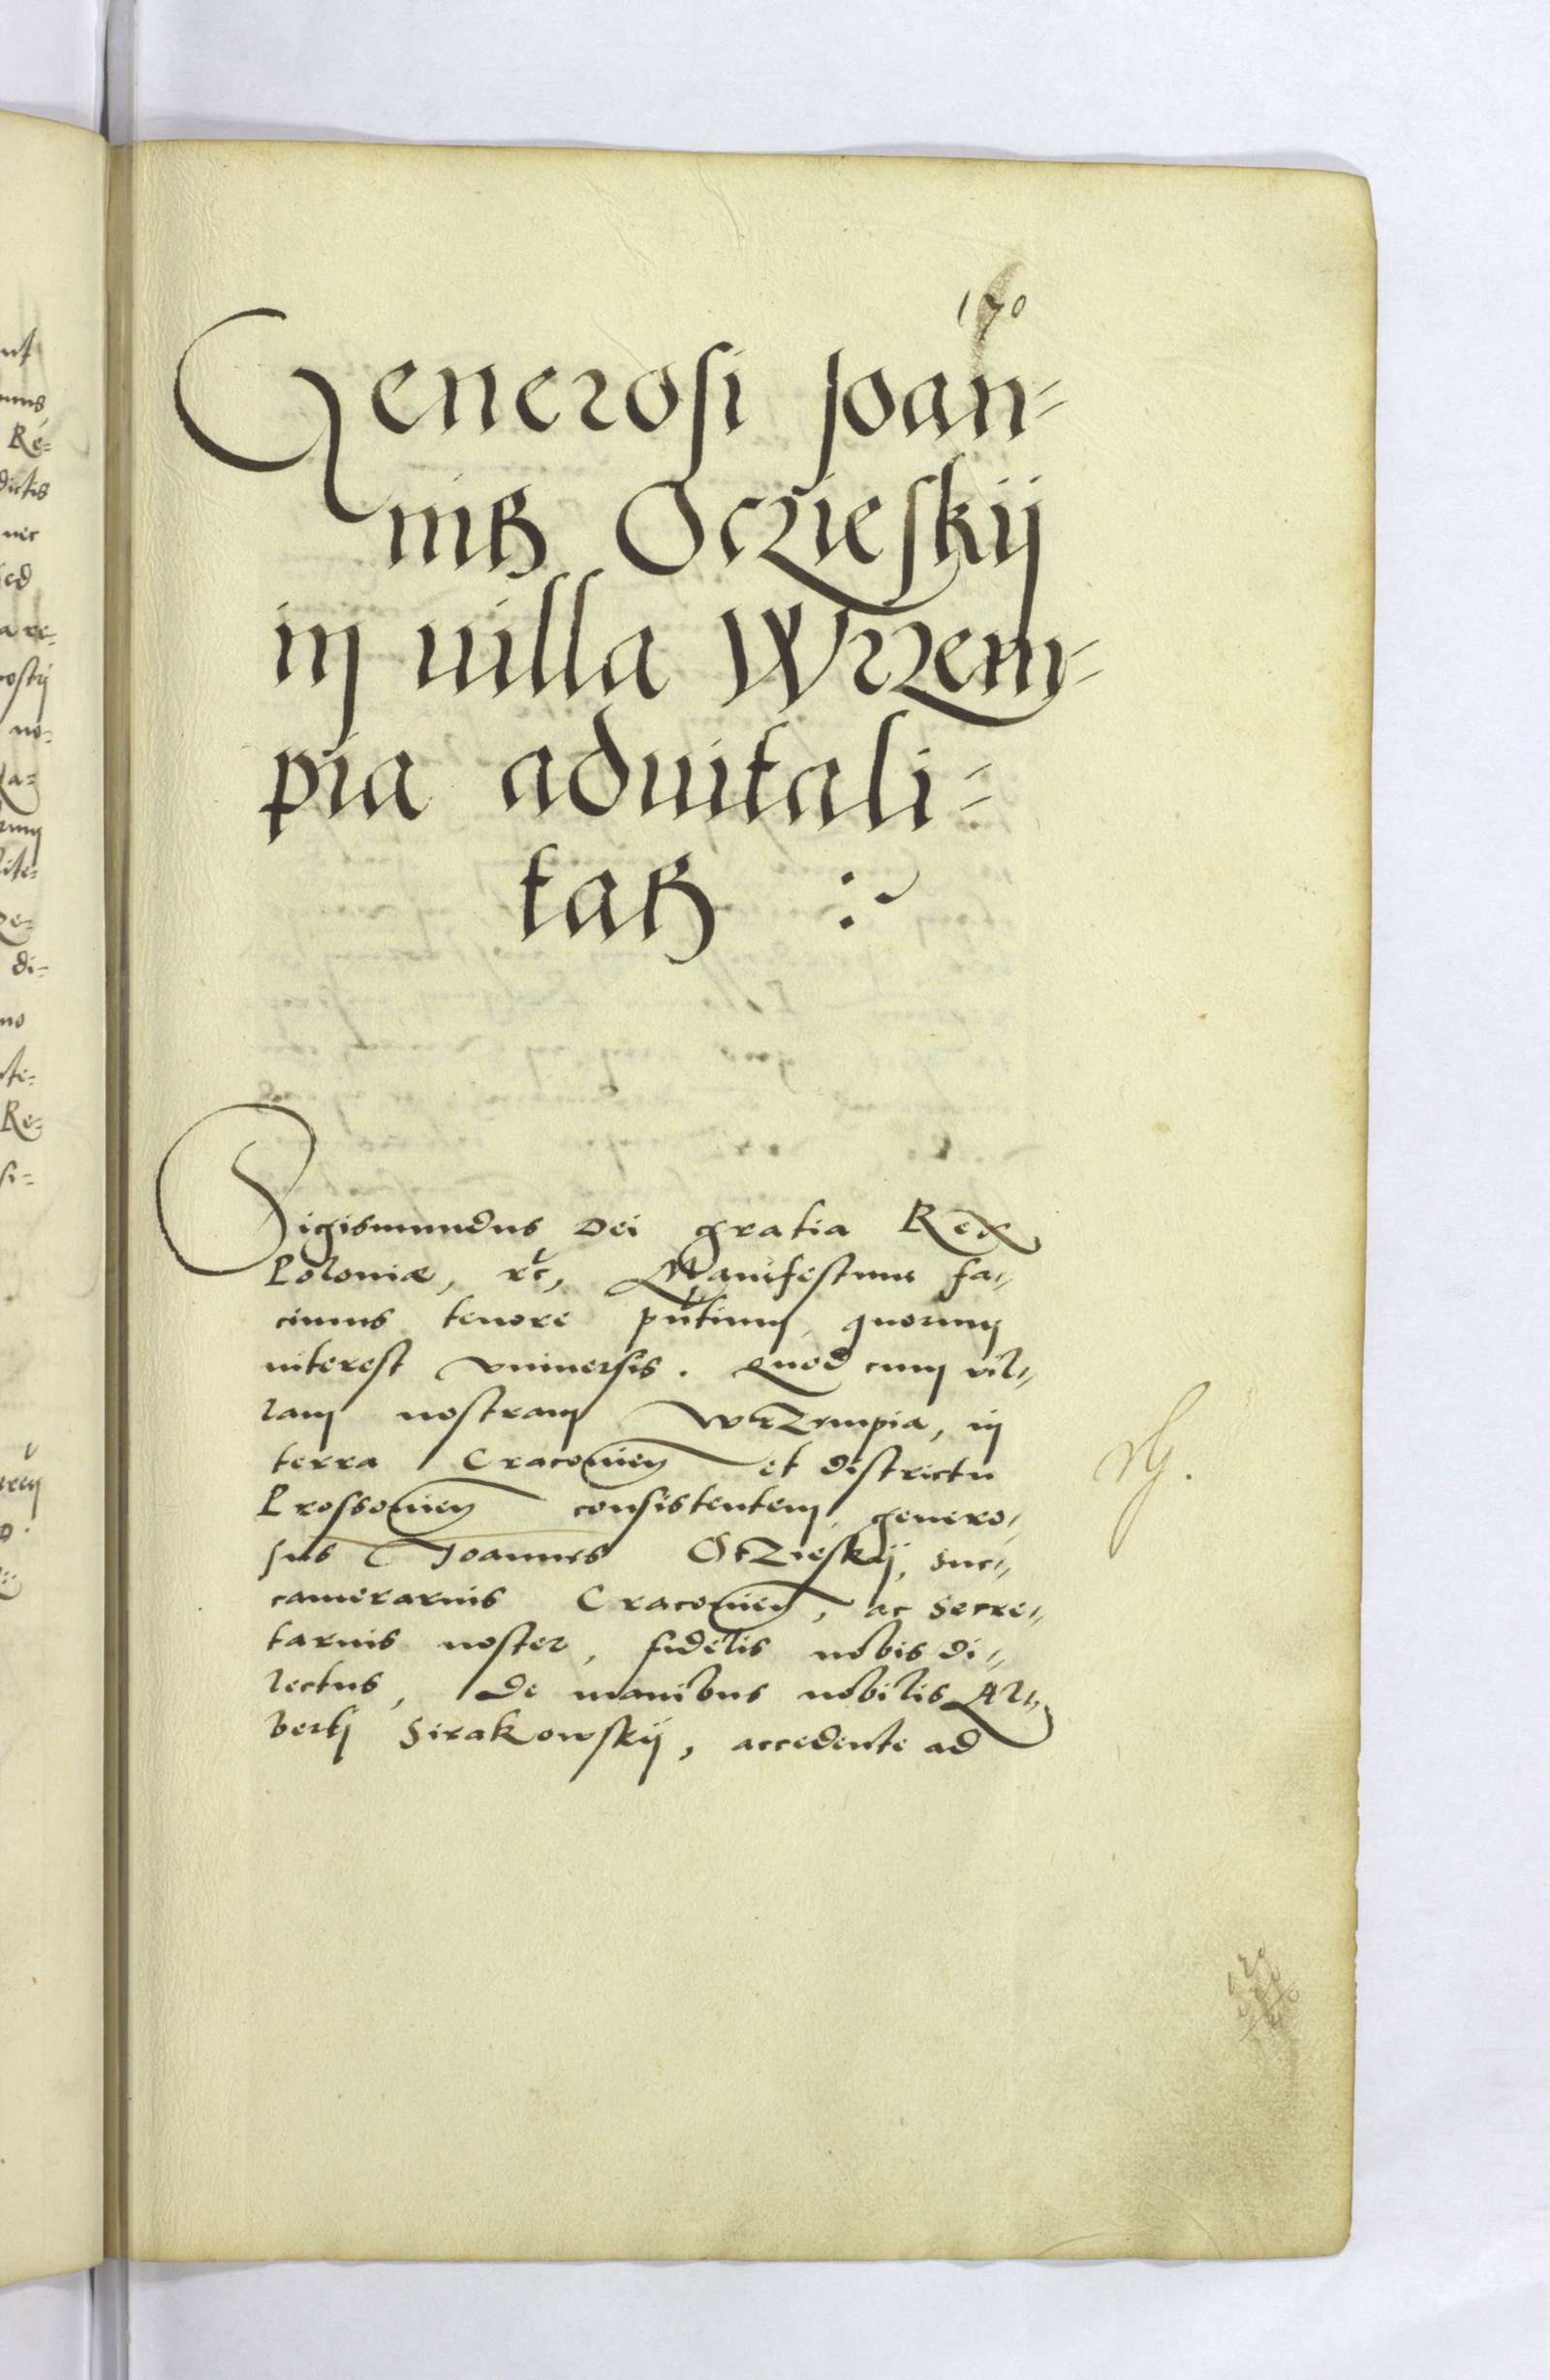 170
Generosi Joan-
nis Oczieskij
in uilla Wrzem-
pia aduitali-
tas
Sigismundus Dei gratia Rex
Poloniæ, etc, Manifestum fa-
cimus tenore pntium, quorum
interest vniuersis. Quod cum vil-
lam nostram Wrzempia, in
terra Cracovien et districtu
Prossovien consistentem, genero-
sus Joannes Otzieskij, suc-
camerarius Cracovien, ac Secre-
tarius noster, fidelis nobis di-
lectus, de manibus nobilis Al-
berti Sirakowskij, accedente ad